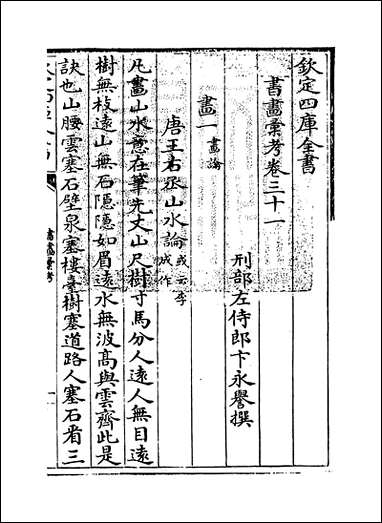 欽定四庫全書
書畫彙考卷三十一
刑部左侍郎卞永譽撰
畫一 畫論
唐王右丞山水論 或云李成作
凡畫山水意在筆先丈山尺樹寸馬分人遠人無目遠
樹無枝遠山無石隱隱如眉遠水無波髙與雲齊此是
訣也山腰雲塞石壁泉塞樓臺樹塞道路人塞石看三
書畫彙考